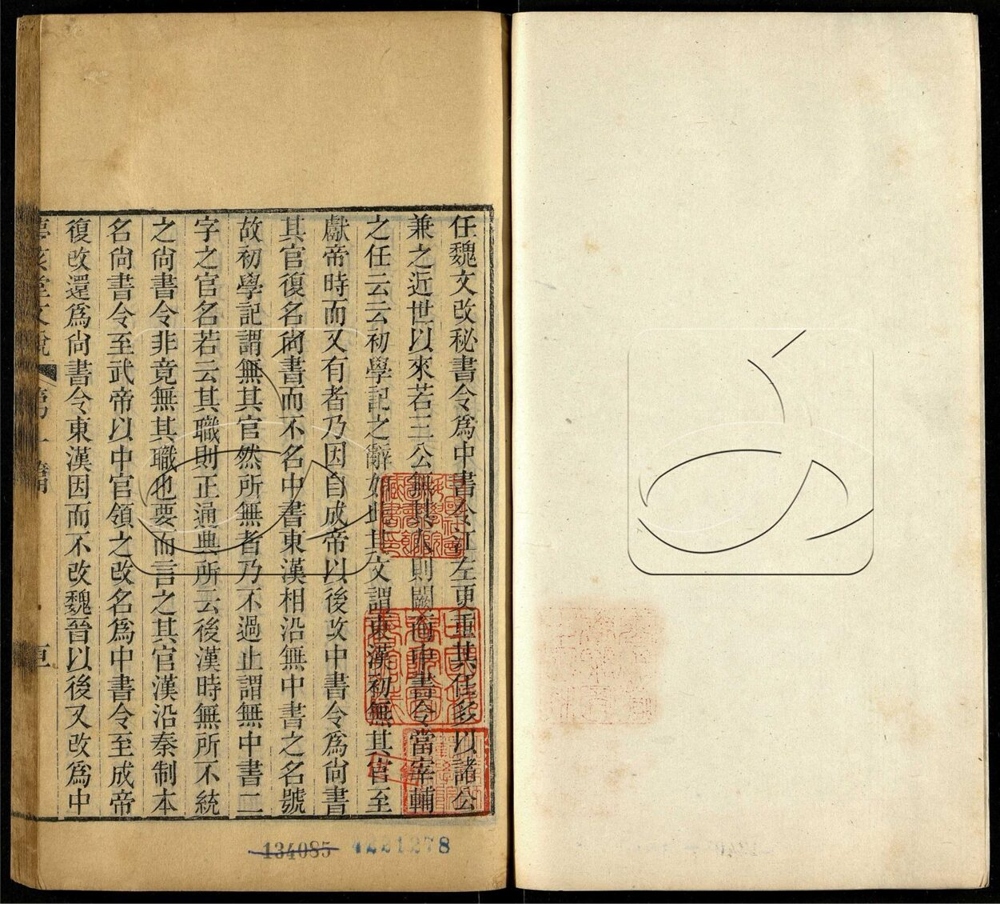 任魏文改秘書令爲中書令江左更重其任多以諸公
兼之近世以來若三公無其人則闕而中書令當宰輔
之任云云初學記之辭如此其文謂東漢初無其官至
獻帝時而又有者乃因自成帝以後改中書令爲尙書
其官復名尙書而不名中書東漢相沿無中書之名號
故初學記謂無其官然所無者乃不過止謂無中書二
字之官名若云其職則正通典所云後漢時無所不統
之尙書令非竟無其職也要而言之其官漢沿秦制本
名尙書令至武帝以中官領之改名爲中書令至成帝
復改還爲尙書令東漢因而不改魏晉以後又改爲中
134085 4221278